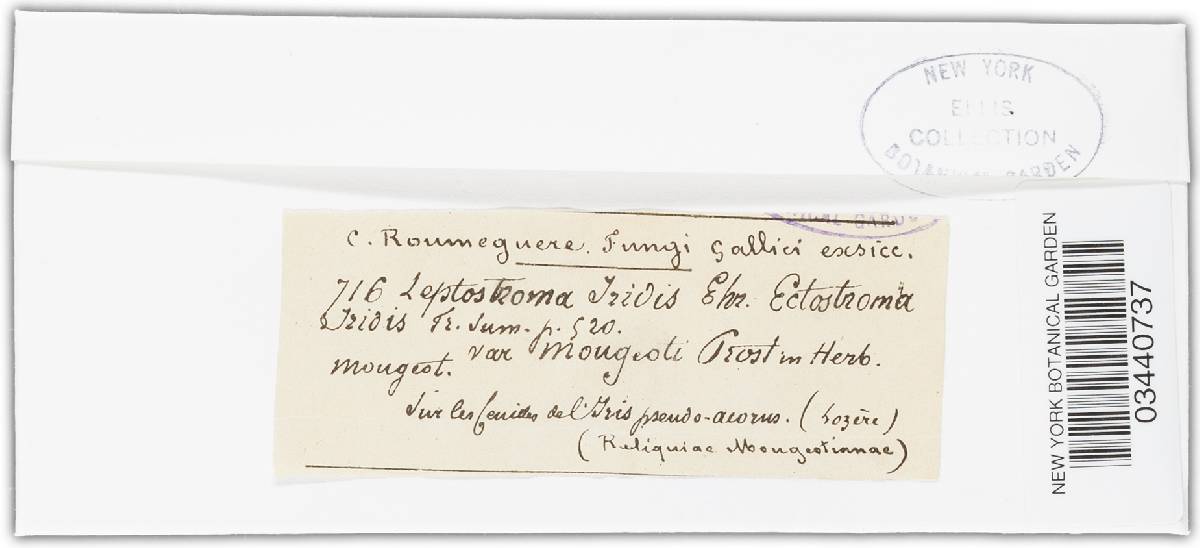 NEW YORK
ELLIS
COLLECTION
BOTANICAL GARDEN
C. Roumeguere. Fungi Gallici exsicc.
716 Leptostroma Iridis Ehr. Ectostroma
Iridis Fr. Sum. p. 520.
var Mougeoti Prost in Herb.
Mougeot.
Sur les feuilles de l'Iris pseudo-acorus. (Lozère)
(Reliquiae Mougeotianae)
NEW YORK BOTANICAL GARDEN
03440737